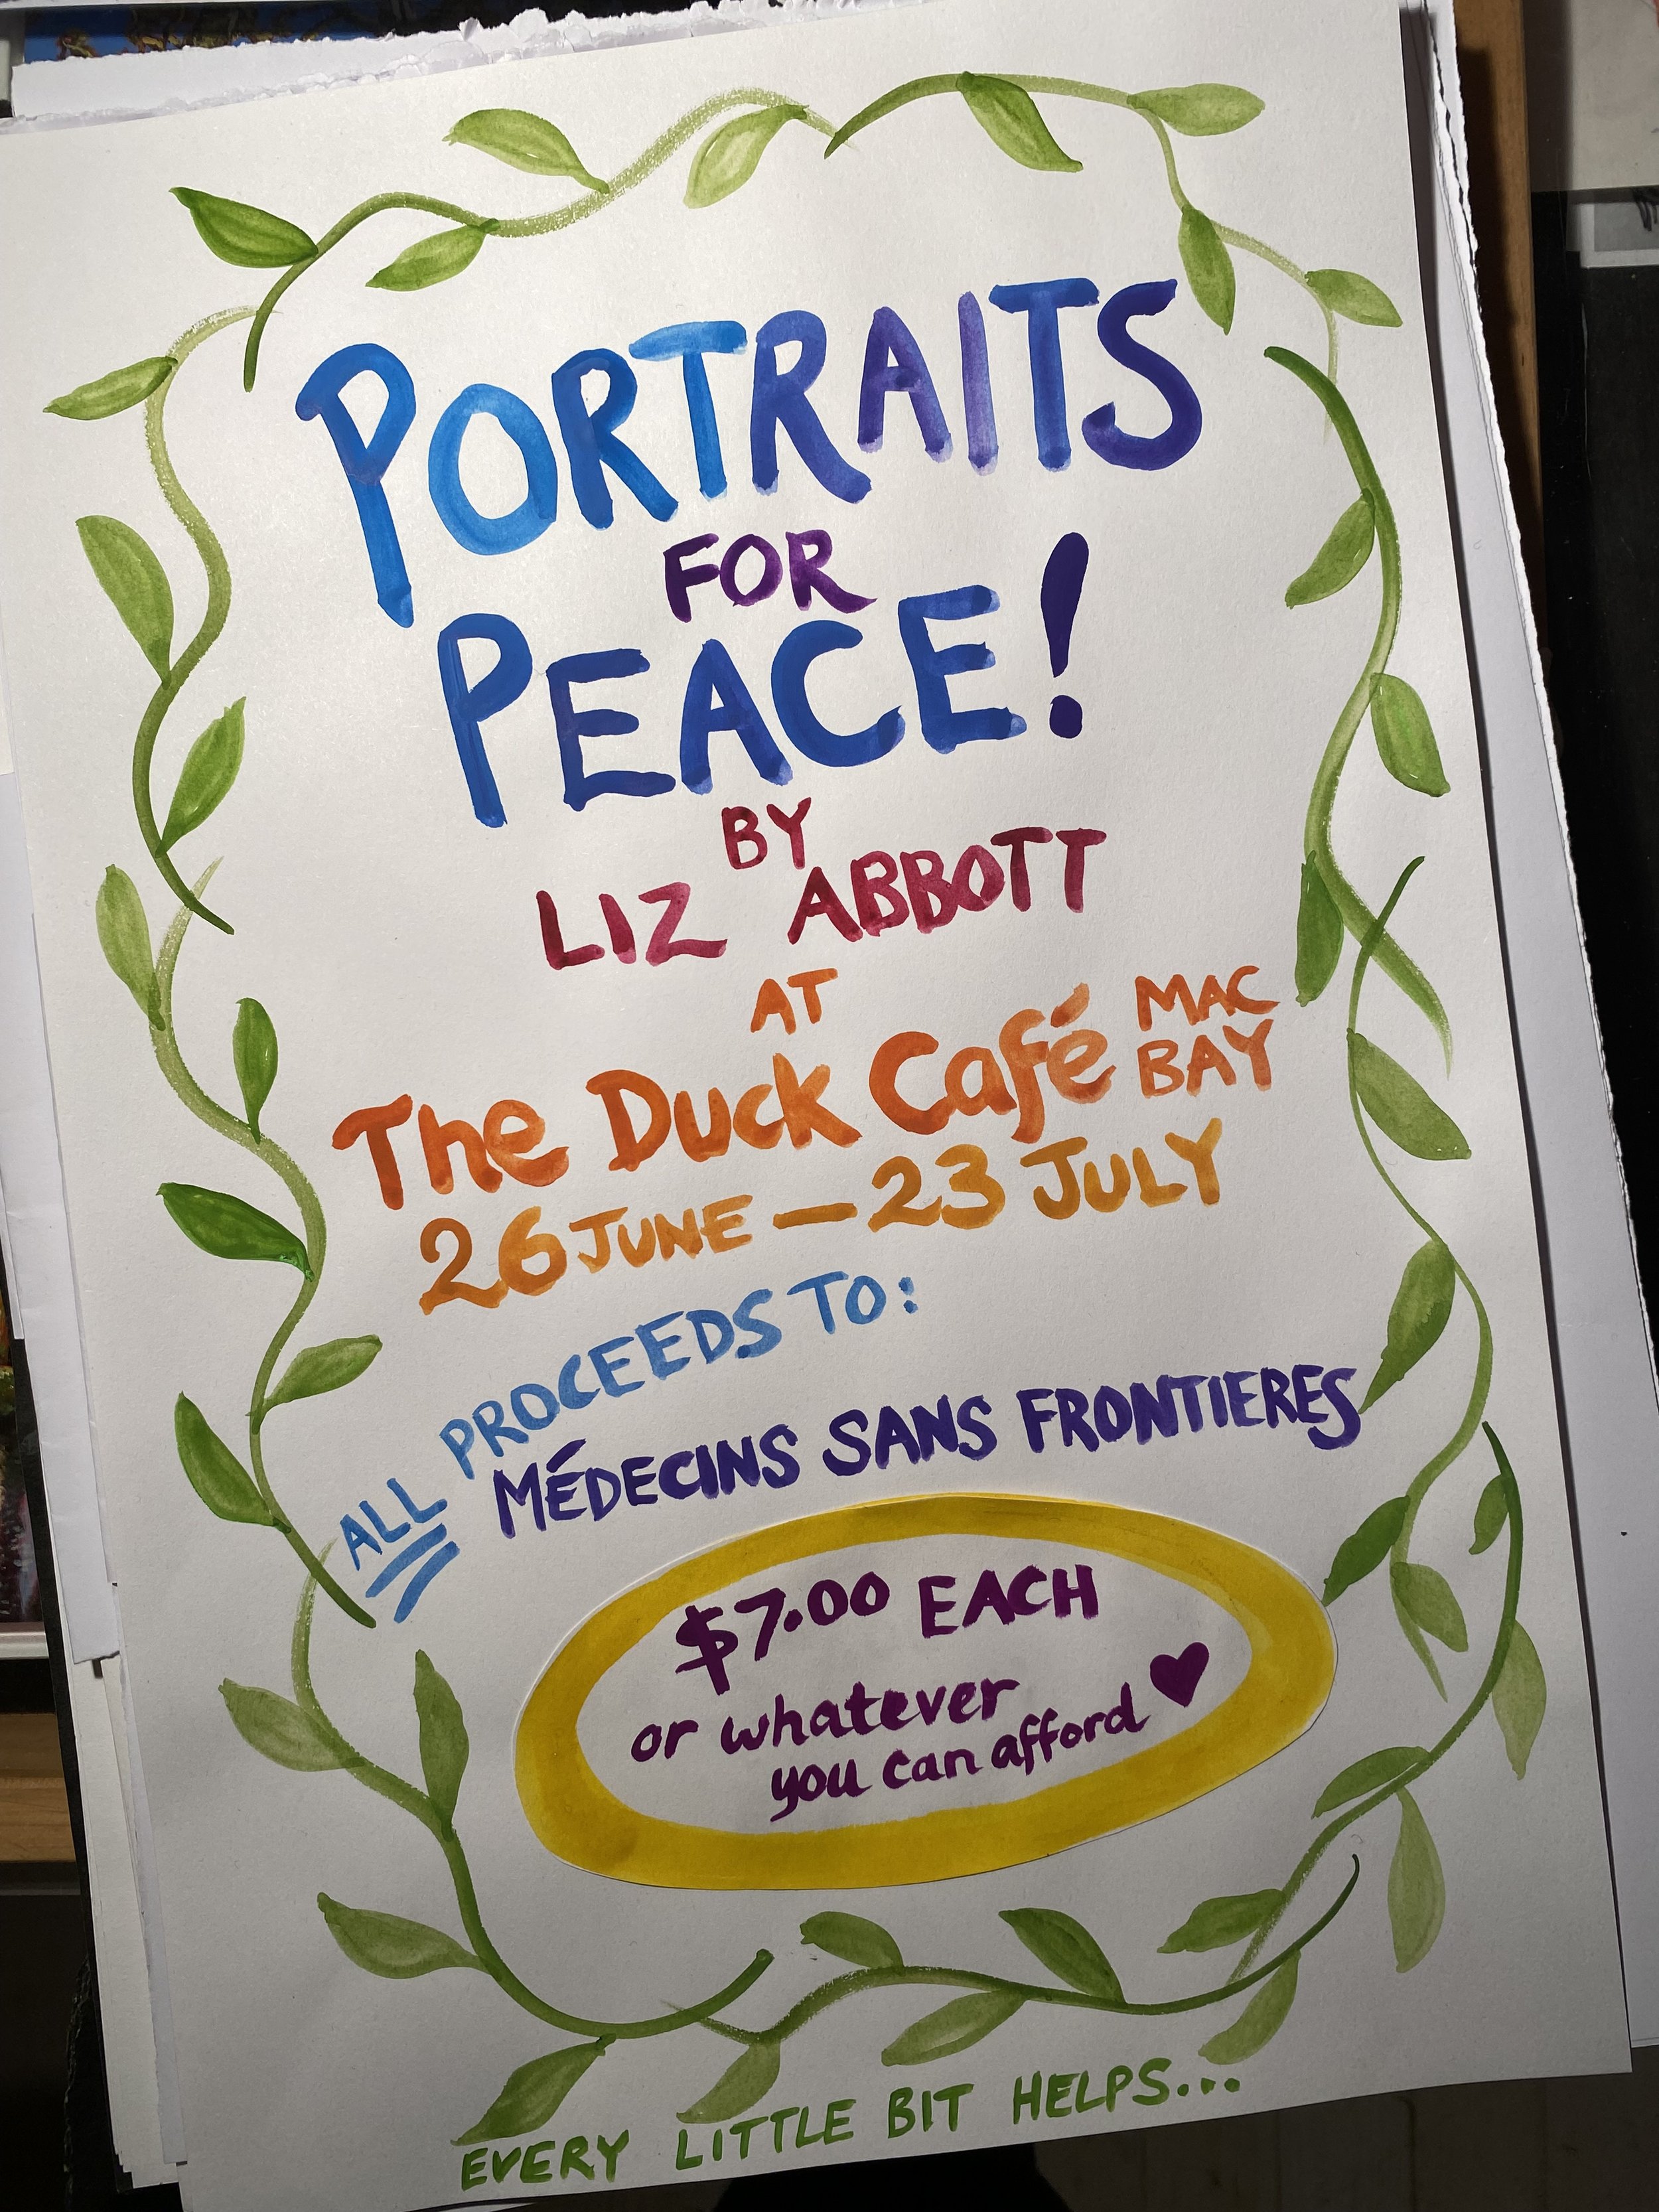 PORTRAITS
FOR
PEACE!
BY
LIZ ABBOTT
AT
The Duck Café MAC BAY
26 JUNE — 23 JULY
ALL PROCEEDS TO:
MÉDECINS SANS FRONTIERES
$7.00 EACH
or whatever
you can afford ♥
EVERY LITTLE BIT HELPS...